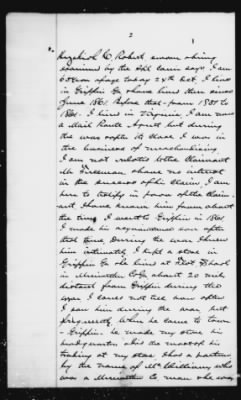 2
Hezekiah C. Robert sworn & being
examined by the Spl Comr says. I am
65 years of age today 24th Oct. I live
in Griffin Ga & have lived there since
June 1861. Before that from 1851 to
1861. I lived in Virginia. I am now
a Mail Route Agent but during
the war & after its close I was in
the business of merchandising
I am not related to the Claimant
Mr Freeman & have no interest
in the success of his Claim. I am
here to testify in favor of the Claim-
ant. I have known him from about
the time I went to Griffin in 1861.
I made his acquaintance soon after
that time, During the war I knew
him intimately. I kept a store in
Griffin Ga & he lived at
in Meriwether Co Ga about 20 miles
distant from Griffin during the
war I could not tell how often
I saw him during the war but
frequently. When he came to town
- Griffin - he made my store his
headquarters & did the most of his
trading at my store. I had a partner
by the name of Mr Williams who
was a Meriwether Co man & he was